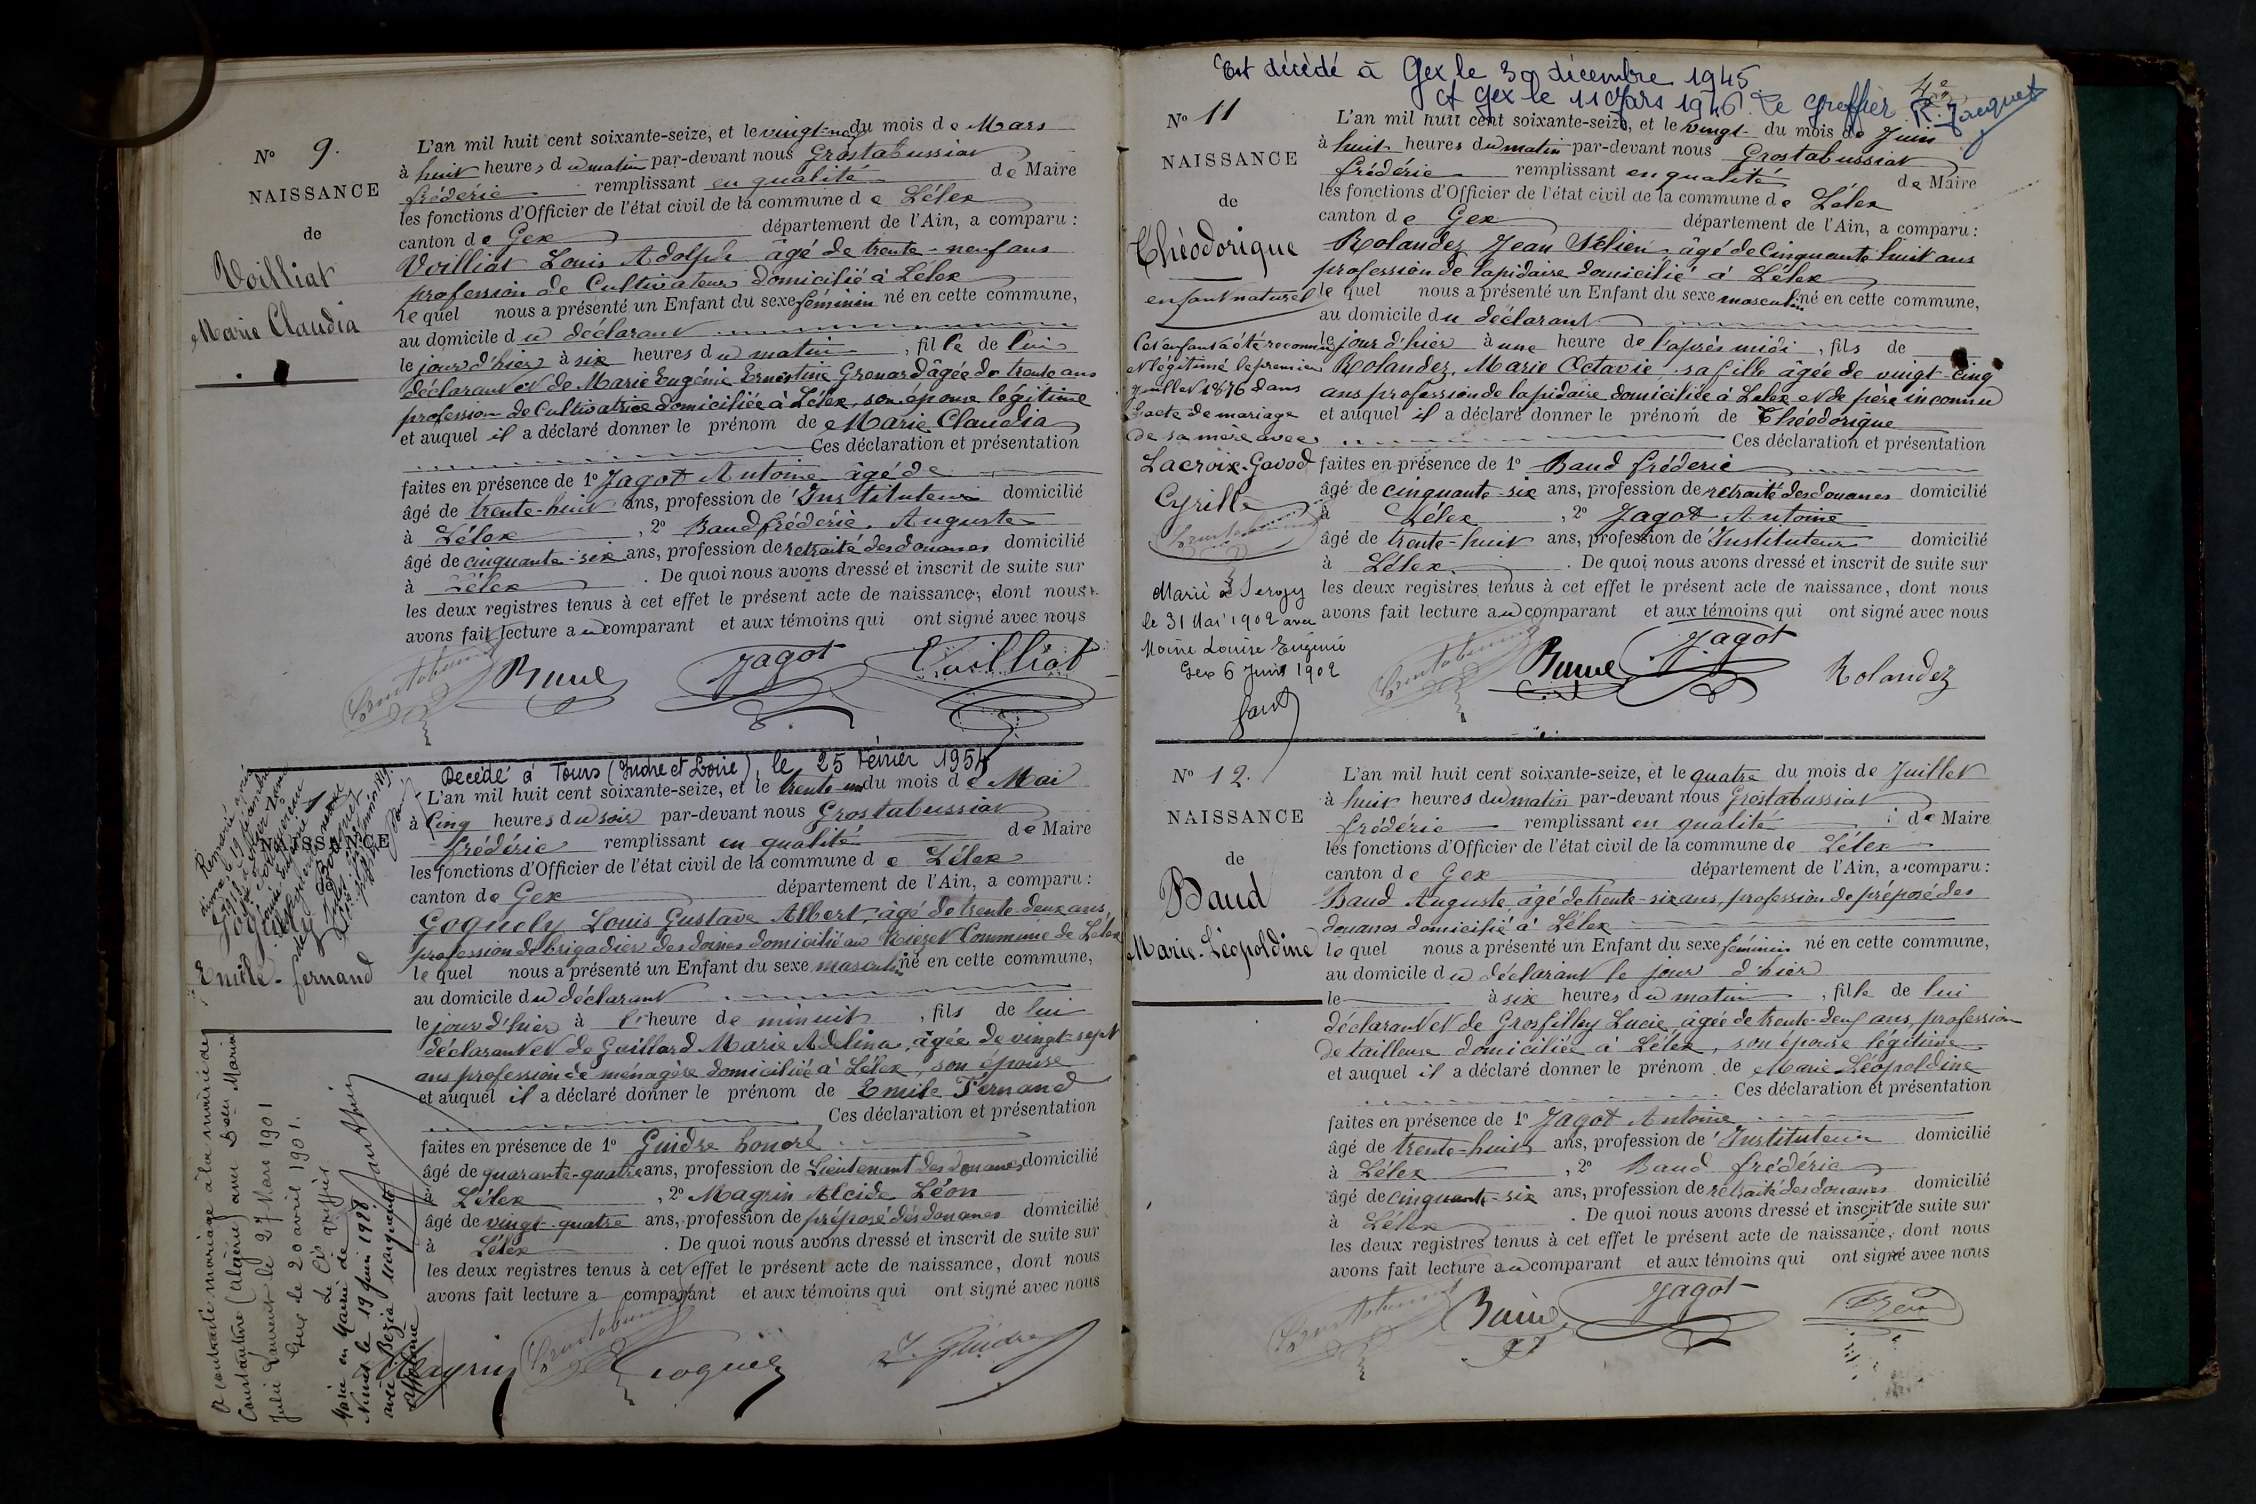 N° 9.
NAISSANCE
de
Voilliat
Marie Claudia
L'an mil huit cent soixante-seize, et le vingt-neuf du mois de Mars
à huit heures du matin par-devant nous Grostabussiat
fréderic remplissant en qualité de Maire
les fonctions d'Officier de l'état civil de la commune de Lélex
canton de Gex département de l'Ain, a comparu :
Voilliat Louis Adolphe âgé de trente-neuf ans
profession de Cultivateur domicilié à Lélex
lequel nous a présenté un Enfant du sexe féminin né en cette commune,
au domicile du déclarant
le jour d'hier à six heures du matin, fille de lui
déclarant et de Marie Eugénie Ernestine Grenard âgée de trente ans
profession de Cultivatrice domiciliée à Lélex, son épouse légitime
et auquel il a déclaré donner le prénom de Marie Claudia
Ces déclaration et présentation
faites en présence de 1° Jagot Antoine âgé de
âgé de trente-huit ans, profession de Instituteur domicilié
à Lélex, 2° Baud fréderic Auguste
âgé de cinquante-six ans, profession de retraité des douanes domicilié
à Lélex. De quoi nous avons dressé et inscrit de suite sur
les deux registres tenus à cet effet le présent acte de naissance, dont nous
avons fait lecture au comparant et aux témoins qui ont signé avec nous
Jagot Voilliat
Décédé à Tours (Indre et Loire), le 25 Février 1954
NAISSANCE
Goguely
Emile-fernand
L'an mil huit cent soixante-seize, et le trente-un du mois de Mai
à Cinq heures du soir par-devant nous Grostabussiat
fréderic remplissant en qualité de Maire
les fonctions d'Officier de l'état civil de la commune de Lélex
canton de Gex département de l'Ain, a comparu :
Goguely Louis Gustave Albert, âgé de trente-deux ans,
profession de brigadier des douanes domicilié au Niezet Commune de Lélex
lequel nous a présenté un Enfant du sexe masculin né en cette commune,
au domicile du déclarant
le jour d'hier à l'heure de minuit, fils de lui
déclarant et de Guillard Marie Adelina, âgée de vingt-sept
ans profession de ménagère domiciliée à Lélex, son épouse
et auquel il a déclaré donner le prénom de Emile Fernand
Ces déclaration et présentation
faites en présence de 1° Guidre honoré
âgé de quarante-quatre ans, profession de Lieutenant des douanes domicilié
à Lélex, 2° Magrin Alcide Léon
âgé de vingt-quatre ans, profession de préposé des douanes domicilié
à Lélex. De quoi nous avons dressé et inscrit de suite sur
les deux registres tenus à cet effet le présent acte de naissance, dont nous
avons fait lecture a comparant et aux témoins qui ont signé avec nous
Magrin Goguely Guidre
A contracté mariage à la mairie de
Constantine (Algérie) avec
Julie Laurent le 27 Mars 1901
Gex le 20 avril 1901.
Le Cis greffier
Marié en Mairie de
Nimes le 19 Juin 1928
avec Bezia Marguerite
Est décédé à Gex le 30 décembre 1945
A Gex le 11 Mars 1946. Le greffier R. Jacquet
N° 11
NAISSANCE
de
Théodorique
enfant naturel
Cet enfant a été reconnu
et légitimé le premier
Juillet 1876 dans
l'acte de mariage
de sa mère avec
Lacroix-Gavod
Cyrille
Marié à Sergy
le 31 Mai 1902 avec
Moine Louise Eugénie
Gex 6 Juin 1902
L'an mil huit cent soixante-seize, et le vingt du mois de Juin
à huit heures du matin par-devant nous Grostabussiat
fréderic remplissant en qualité de Maire
les fonctions d'Officier de l'état civil de la commune de Lélex
canton de Gex département de l'Ain, a comparu :
Rolandez Jean Félien, âgé de Cinquante huit ans
profession de lapidaire domicilié à Lélex
lequel nous a présenté un Enfant du sexe masculin né en cette commune,
au domicile du déclarant
le jour d'hier à une heure de l'après midi, fils de
Rolandez, Marie Octavie sa fille âgée de vingt-cinq
ans profession de lapidaire domiciliée à Lelex et de père inconnu
et auquel il a déclaré donner le prénom de Théodorique
Ces déclaration et présentation
faites en présence de 1° Baud fréderic
âgé de cinquante-six ans, profession de retraité des douanes domicilié
à Lélex, 2° Jagot Antoine
âgé de trente-huit ans, profession de Instituteur domicilié
à Lélex. De quoi nous avons dressé et inscrit de suite sur
les deux registres tenus à cet effet le présent acte de naissance, dont nous
avons fait lecture au comparant et aux témoins qui ont signé avec nous
Jagot Rolandez
N° 12.
NAISSANCE
de
Baud
Marie-Léopoldine
L'an mil huit cent soixante-seize, et le quatre du mois de Juillet
à huit heures du matin par-devant nous Grostabussiat
fréderic remplissant en qualité de Maire
les fonctions d'Officier de l'état civil de la commune de Lélex
canton de Gex département de l'Ain, a comparu :
Baud Auguste âgé de trente-six ans, profession de préposé des
douanes domicilié à Lélex
lequel nous a présenté un Enfant du sexe féminin né en cette commune,
au domicile du déclarant le jour d'hier
le à six heures du matin, fille de lui
déclarant et de Grosfilley Lucie, âgée de trente-deux ans, profession
de tailleuse domiciliée à Lélex, son épouse légitime
et auquel il a déclaré donner le prénom de Marie Léopoldine
Ces déclaration et présentation
faites en présence de 1° Jagot Antoine
âgé de trente-huit ans, profession de Instituteur domicilié
à Lélex, 2° Baud fréderic
âgé de cinquante-six ans, profession de retraité des douanes domicilié
à Lélex. De quoi nous avons dressé et inscrit de suite sur
les deux registres tenus à cet effet le présent acte de naissance, dont nous
avons fait lecture au comparant et aux témoins qui ont signé avec nous
Jagot